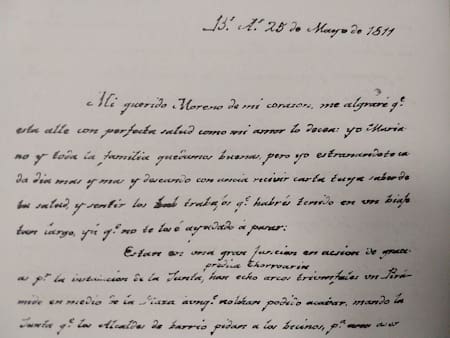 Bs. As. 25 de Mayo de 1811
Mi querido Moreno de mi corazon, me algraré qe.
esta alle con perfecta salud como mi amor lo decea: yo Maria-
no y toda la familia quedamos buenas, pero yo estranandote ca
da dia mas y mas y deseando con ancia recivir carta tuya saber de
tu salud, y sentir los trabajos qe. habrés tenido en un biaje
tan largo, yá qe. no te los é ayudado á pasar:
Estan en una gran funcion en acsion de graci
predica Chorroarin
as pr. la instalacion de la Junta, han echo arcos triumfales un Pirá
mide en medio de la Plaza aunqe. no lo han podido acabar, mando la
Junta qe. los Alcaldes de barrio pidan a los becinos, pa.